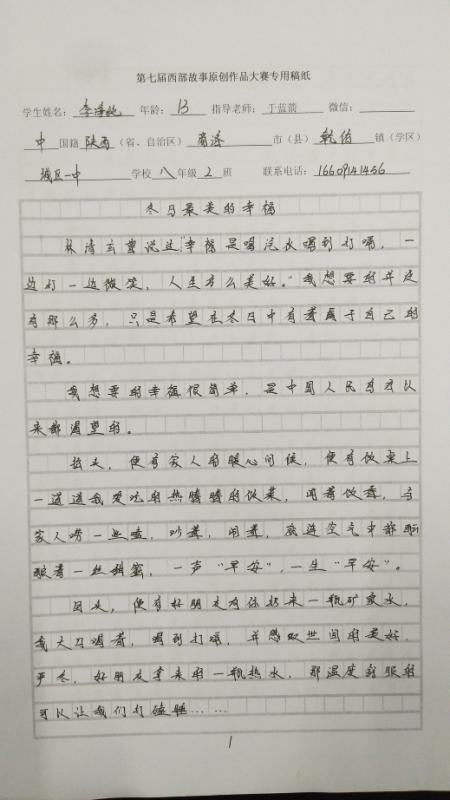 第七届西部故事原创作品大赛专用稿纸
学生姓名： 年龄：13 指导老师：于蓝蓝 微信：
中 国籍 陕西（省、自治区）商洛 市（县）乾佑 镇（学区）
城区一中 学校 八 年级 2 班 联系电话：16609141456
冬日最美的幸福
林清玄曾说过"幸福是喝汽水喝到打嗝，一
边打一边微笑，人生多么美好。"我想要的并没
有那么多，只是希望在冬日中有着属于自己的
幸福。
我想要的幸福很简单，是中国人民有史以
来都渴望的。
抬头，便有家人的暖心问候，便有饭桌上
一道道我爱吃的热腾腾的饭菜，闻着饭香，与
家人唠一些嗑，吵着，闹着，空气中都
着一丝甜蜜，一声"早安"，一生"早安"。
回头，便有好朋友向你扔来一瓶矿泉水，
我大口喝着，喝到打嗝，并感叹世间的美好，
严冬，好朋友拿来的一瓶热水，那温度舒服的
可以让我们打瞌睡……
1